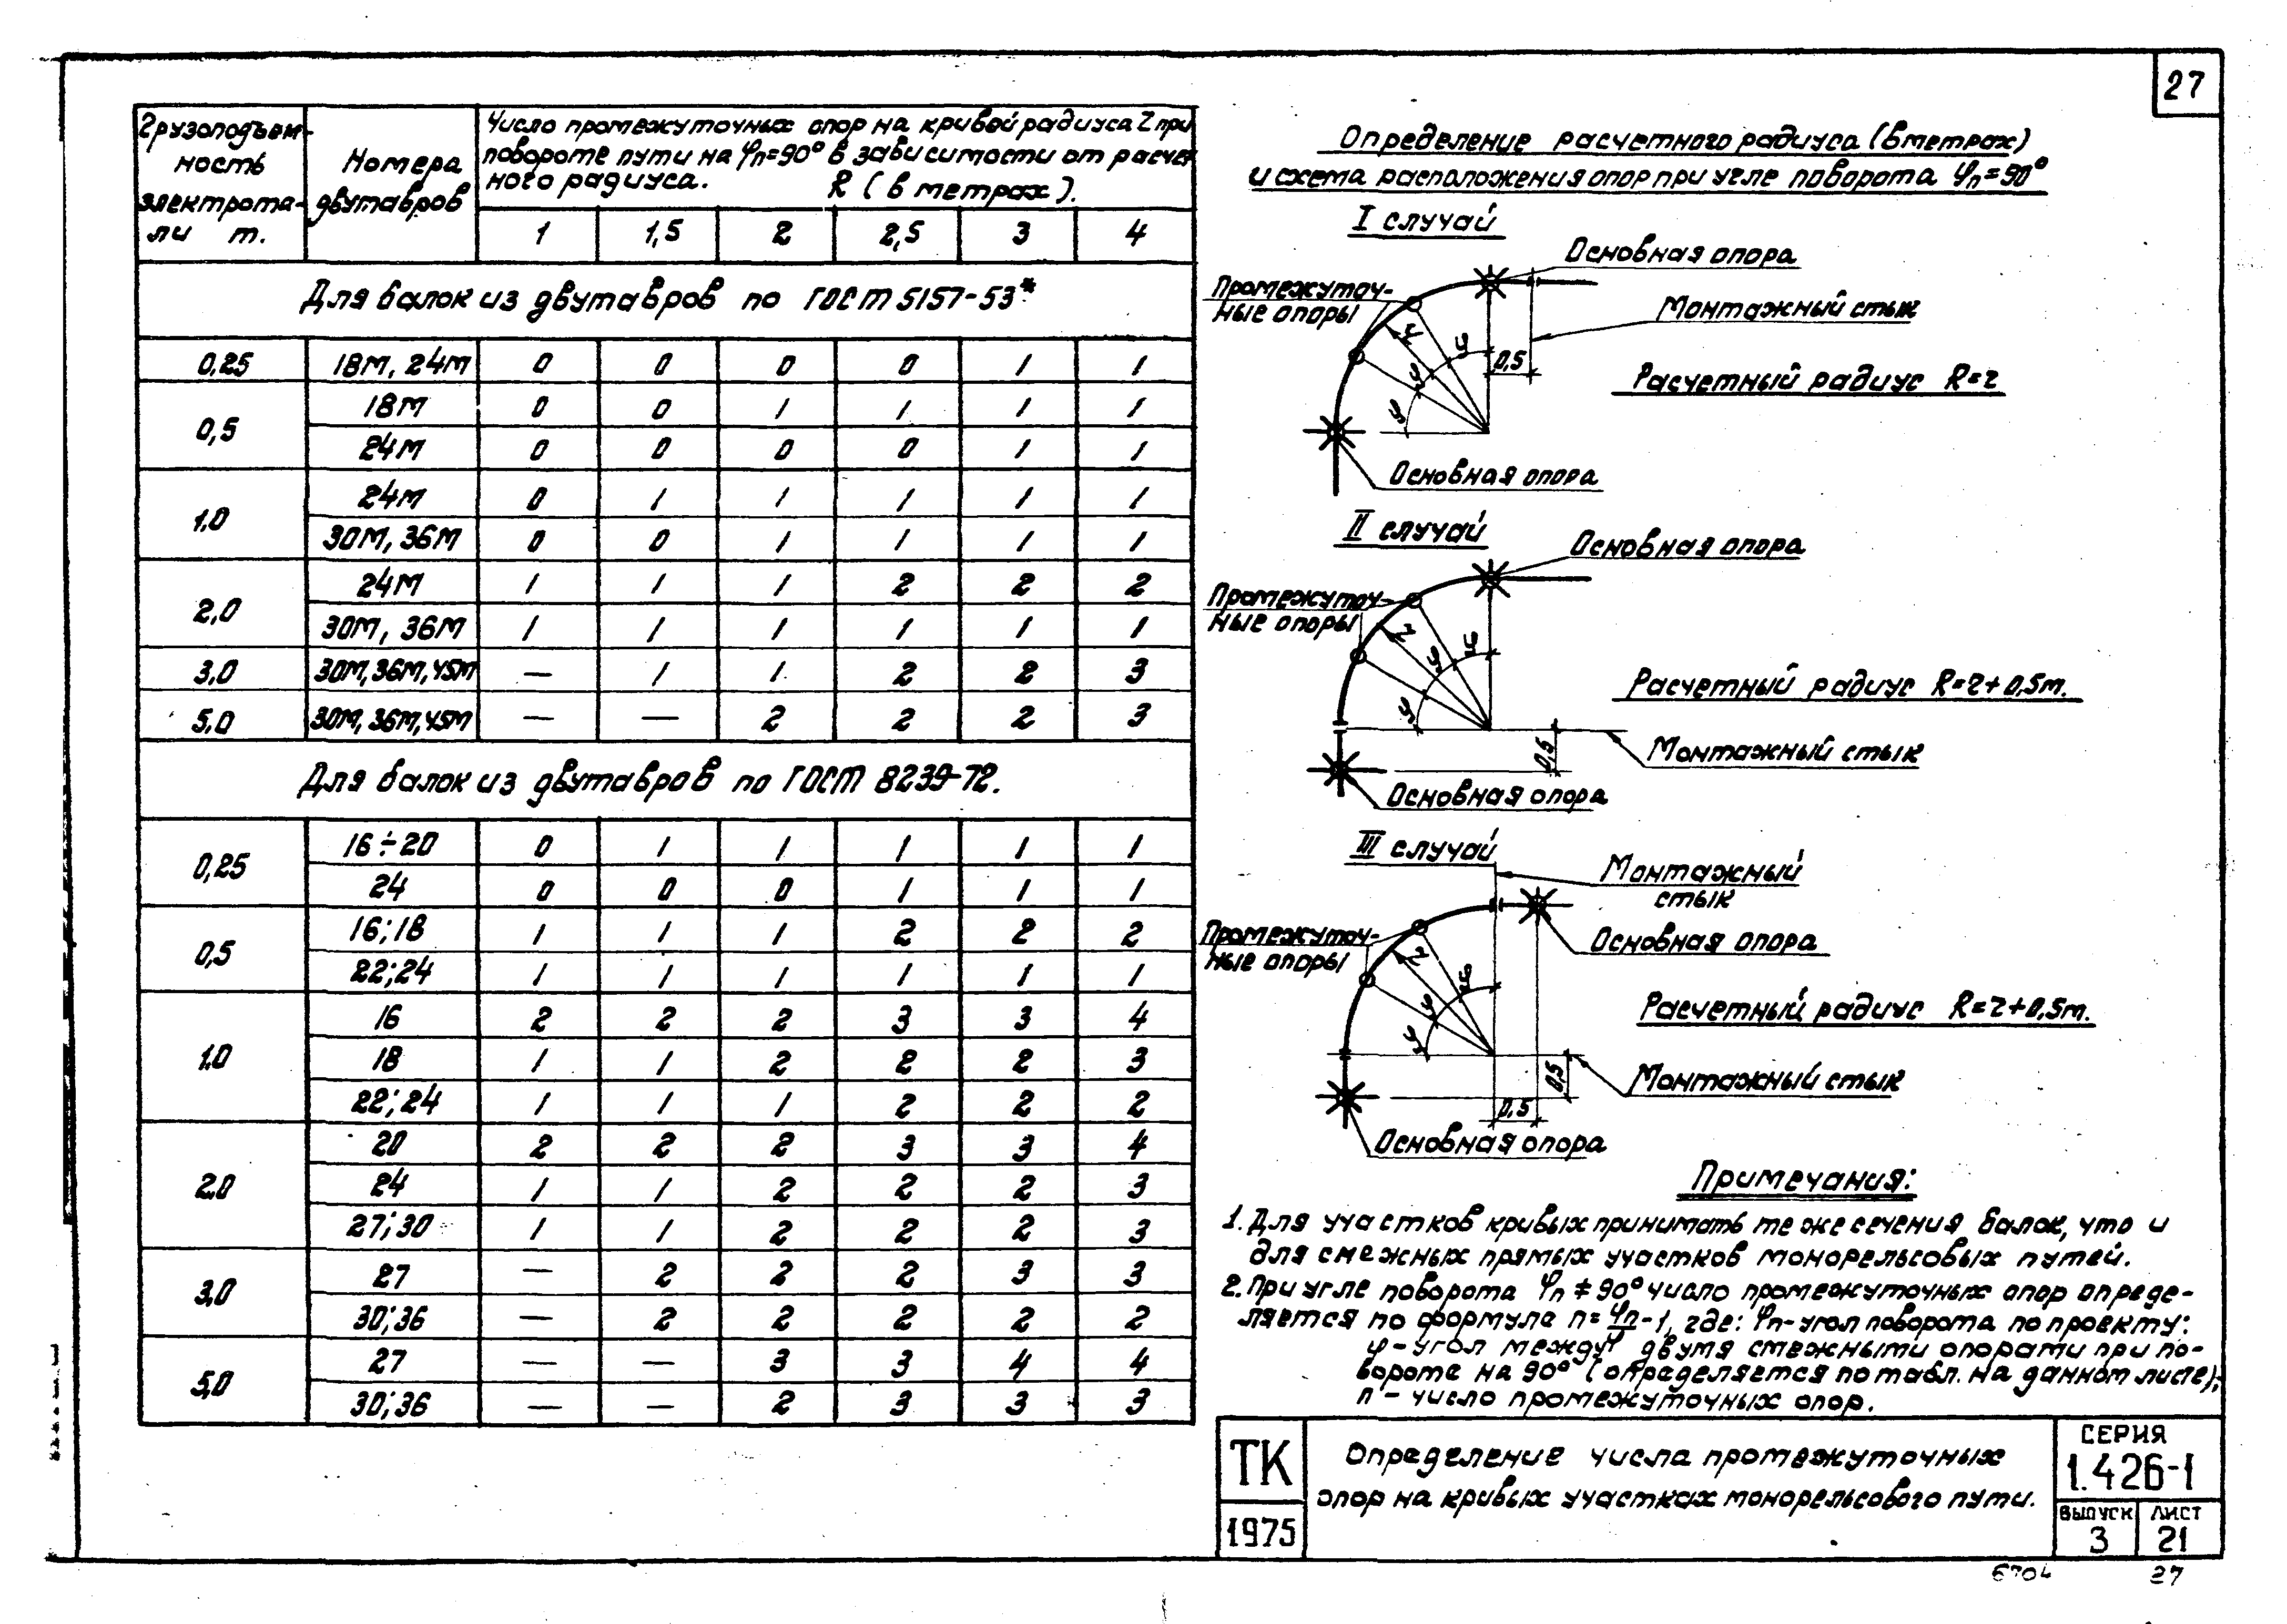 27
Грузоподъем-
ность
электрота-
ли т.
Номера
двутавров
Число промежуточных опор на кривой радиуса r при
повороте пути на φп=90° в зависимости от расчет
ного радиуса. R (в метрах).
1 1,5 2 2,5 3 4
Для балок из двутавров по ГОСТ 5157-53*
0,25 18М, 24М 0 0 0 0 1 1
0,5 18М 0 0 1 1 1 1
24М 0 0 0 0 1 1
1,0 24М 0 1 1 1 1 1
30М, 36М 0 0 1 1 1 1
2,0 24М 1 1 1 2 2 2
30М, 36М 1 1 1 1 1 1
3,0 30М, 36М, 45М — 1 1 2 2 3
5,0 30М, 36М, 45М — — 2 2 2 3
Для балок из двутавров по ГОСТ 8239-72.
0,25 16÷20 0 1 1 1 1 1
24 0 0 0 1 1 1
0,5 16; 18 1 1 1 2 2 2
22; 24 1 1 1 1 1 1
1,0 16 2 2 2 3 3 4
18 1 1 2 2 2 3
22; 24 1 1 1 2 2 2
2,0 20 2 2 2 3 3 4
24 1 1 2 2 2 3
27; 30 1 1 2 2 2 3
3,0 27 — 2 2 2 3 3
30; 36 — 2 2 2 2 2
5,0 27 — — 3 3 4 4
30; 36 — — 2 3 3 3
Определение расчетного радиуса (в метрах)
и схема расположения опор при угле поворота φп=90°
I случай
Основная опора
Промежуточ-
ные опоры
Монтажный стык
r φ φ φ 0,5
Расчетный радиус R=r
Основная опора
II случай
Основная опора
Промежуточ-
ные опоры
r φ φ φ
Расчетный радиус R=r+0,5м.
Монтажный стык
0,5
Основная опора
III случай
Монтажный
стык
Промежуточ-
ные опоры
Основная опора
r φ φ φ
Расчетный радиус R=r+0,5м.
Монтажный стык
0,5
0,5
Основная опора
Примечания:
1. Для участков кривых принимать те же сечения балок, что и
для смежных прямых участков монорельсовых путей.
2. При угле поворота φп ≠ 90° число промежуточных опор опреде-
ляется по формуле n=φп/φ-1, где: φп-угол поворота по проекту;
φ - угол между двумя смежными опорами при по-
вороте на 90° (определяется по табл. на данном листе);
n - число промежуточных опор.
ТК
1975
Определение числа промежуточных
опор на кривых участках монорельсового пути.
СЕРИЯ
1.426-1
ВЫПУСК
3
ЛИСТ
21
6704 27